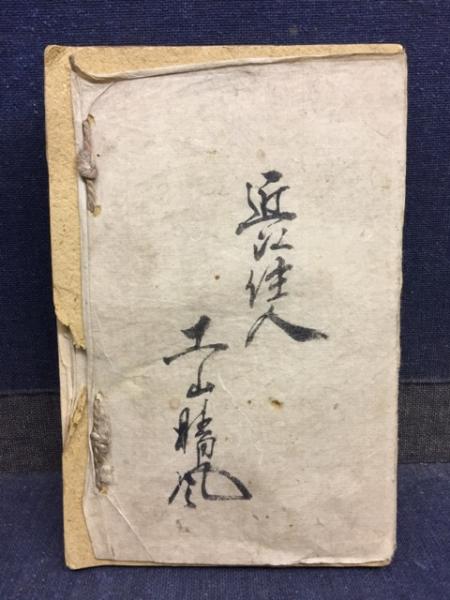 近江住人
土山晴風